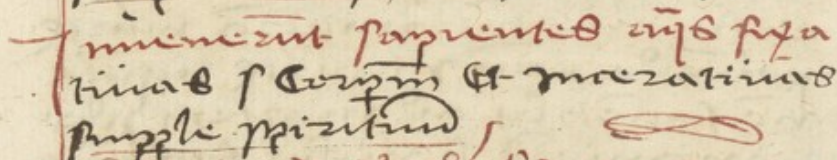 Inuenerūt sapientes aq̄s fixa
tiuas s Corpm̄ Et Inceratiuas
supple spirituū